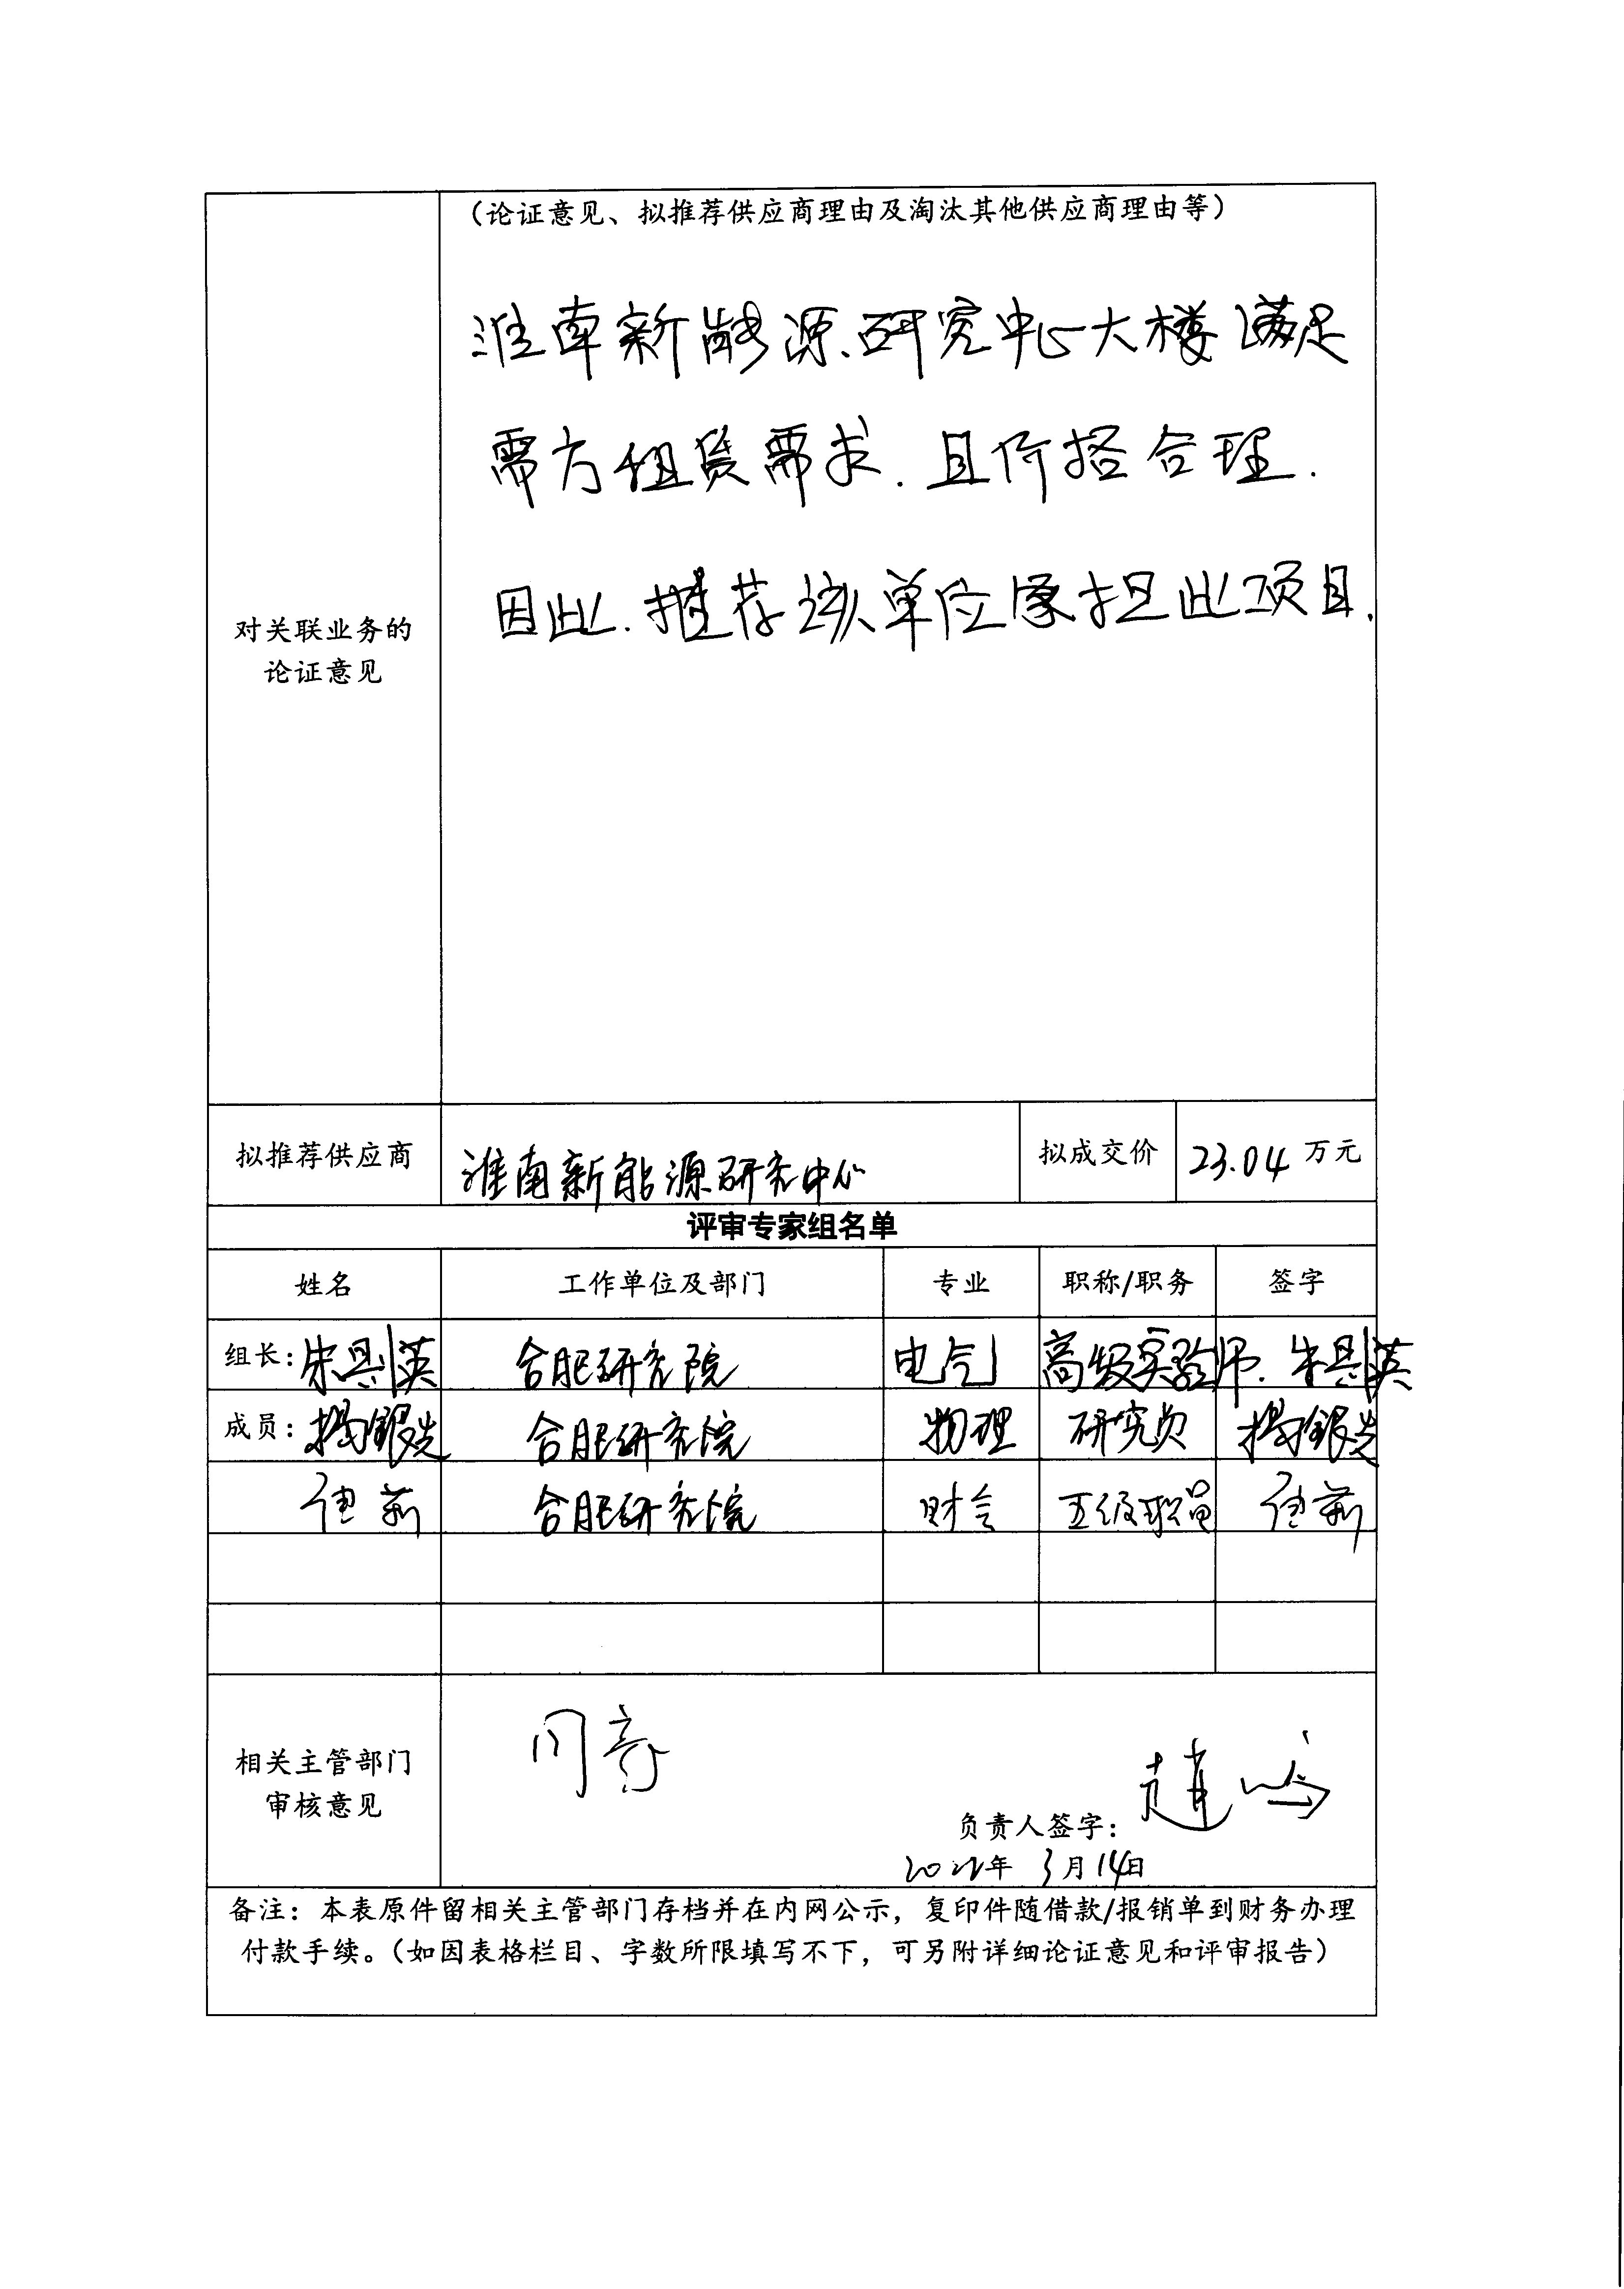 （论证意见、拟推荐供应商理由及淘汰其他供应商理由等）
淮南新能源研究中心大楼满足
需方租赁需求.且价格合理.
因此.推荐该单位承担此项目.
对关联业务的
论证意见
拟推荐供应商 淮南新能源研究中心 拟成交价 23.04 万元
评审专家组名单
姓名 工作单位及部门 专业 职称/职务 签字
组长： 合肥研究院 电气 高级实验师.
成员：杨锦 合肥研究院 物理 研究员 杨锦
合肥研究院 财会 五级职员
同意
相关主管部门
审核意见
负责人签字：
2022年 3月14日
备注：本表原件留相关主管部门存档并在内网公示，复印件随借款/报销单到财务办理
付款手续。（如因表格栏目、字数所限填写不下，可另附详细论证意见和评审报告）